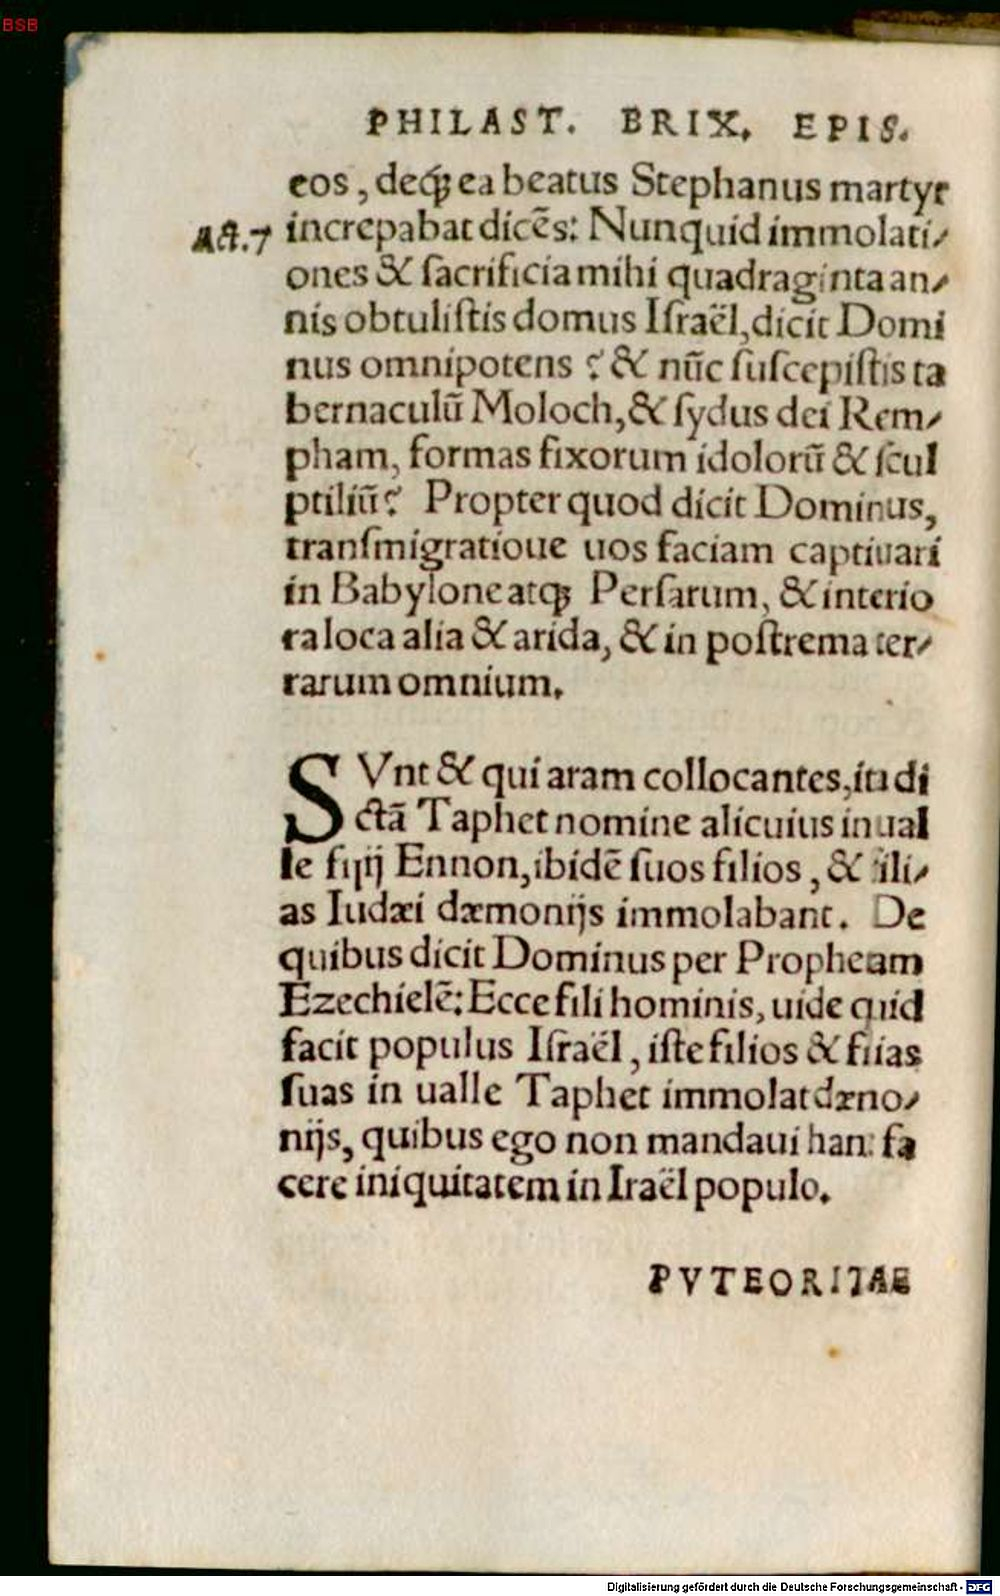 BSB
PHILAST. BRIX. EPIS.
eos, deq́ꝫ ea beatus Stephanus martyr
Act.7 increpabat dicẽs: Nunquid immolati⸗
ones & ſacrificia mihi quadraginta an⸗
nis obtuliſtis domus Iſraël, dicit Domi
nus omnipotens? & nũc ſuſcepiſtis ta
bernaculũ Moloch, & ſydus dei Rem⸗
pham, formas fixorum idolorũ & ſcul
ptiliũ? Propter quod dicit Dominus,
tranſmigratioue uos faciam captiuari
in Babylone atqꝫ Perſarum, & interio
ra loca alia & arida, & in poſtrema ter⸗
rarum omnium.
SVnt & qui aram collocantes, ita di
ctã Taphet nomine alicuius in ual
le filij Ennon, ibidẽ ſuos filios, & fili⸗
as Iudæi dæmonijs immolabant. De
quibus dicit Dominus per Prophetam
Ezechielẽ: Ecce fili hominis, uide quid
facit populus Iſraël, iſte filios & filias
ſuas in ualle Taphet immolat dæmo⸗
nijs, quibus ego non mandaui hanc fa
cere iniquitatem in Iraël populo.
PVTEORITAE
Digitalisierung gefördert durch die Deutsche Forschungsgemeinschaft - DFG